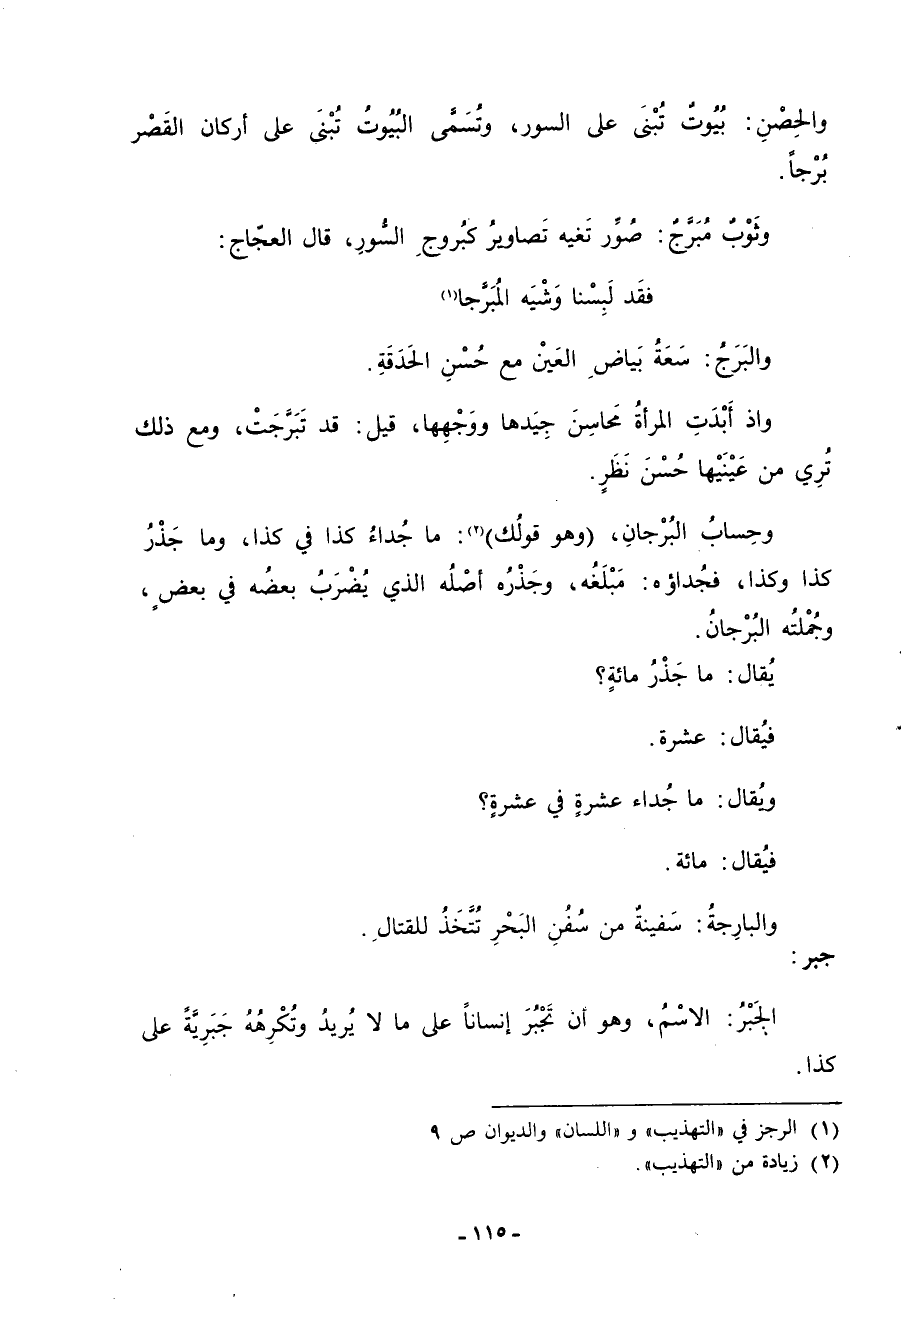 والحِصْنِ: بُيُوتٌ تُبْنَى على السور، وتُسَمَّى البُيُوتُ تُبْنَى على أركان القَصْر
بُرْجاً.
وثَوْبٌ مُبَرَّجٌ: صُوِّر تَغيه تَصاويرُ كَبُروجِ السُّورِ، قال العجّاج:
فقَد لَبِسْنا وَشْيَه المُبَرَّجا(١)
والبَرَجُ: سَعَةُ بَياضِ العَيْنْ مع حُسْنِ الحَدَقَةِ.
واذ أَبْدَتِ المرأةُ مَحاسِنَ جِيَدها ووَجْهِها، قيل: قد تَبَرَّجَتْ، ومع ذلك
تُرِي من عَيْنَيْها حُسْنَ نَظَرٍ.
وحِسابُ البُرْجانِ، (وهو قولُك)(٢): ما جُداءُ كذا في كذا، وما جَذْرُ
كذا وكذا، فجُداؤه: مَبْلَغُه، وجَذْرُه أصْلُه الذي يُضْرَبُ بعضُه في بعضٍ،
وجُمْلتُه البُرْجانُ.
يُقال: ما جَذْرُ مائةٍ؟
فيُقال: عشرة.
ويُقال: ما جُداء عشرةٍ في عشرةٍ؟
فيُقال: مائة.
والبارِجةُ: سَفينةٌ من سُفُنِ البَحْرِ تُتَّخَذُ للقتالِ.
جبر:
الجَبْرُ: الاسْمُ، وهو أن تَجْبُرَ إنساناً على ما لا يُريدُ وتُكْرِهُهُ جَبَرِيَّةً على
كذا.
(١) الرجز في «التهذيب» و «اللسان» والديوان ص ٩
(٢) زيادة من «التهذيب».
- ١١٥ -